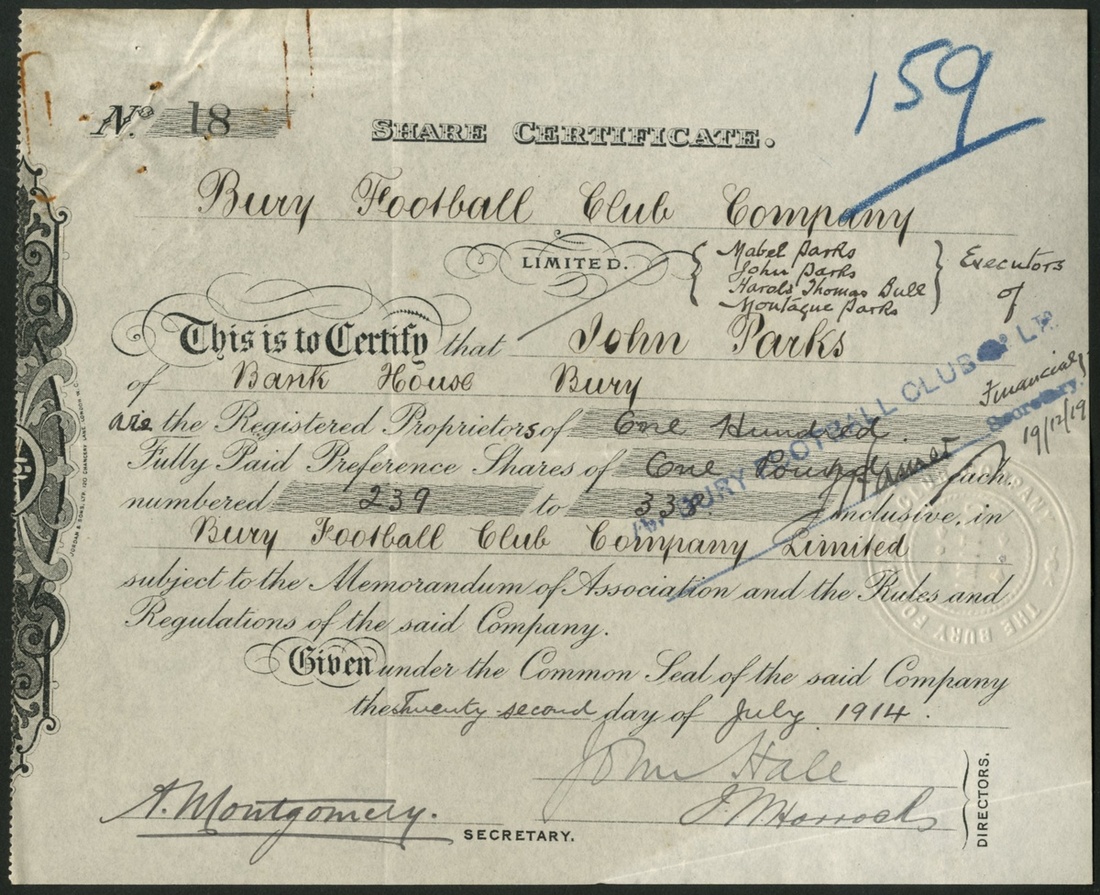 No. 18
159
SHARE CERTIFICATE.
Bury Football Club Company
LIMITED.
Mabel Parks
John Parks
Harold Thomas Bull
Montague Parks
Executors
of
This is to Certify that John Parks
of Bank House Bury
are the Registered Proprietors of One Hundred
Fully Paid Preference Shares of One Pound each,
numbered 239 to 338 inclusive, in
Bury Football Club Company Limited
subject to the Memorandum of Association and the Rules and
Regulations of the said Company.
Given under the Common Seal of the said Company
the Twenty second day of July 1914.
For BURY FOOTBALL CLUB Co LTD.
Financial
Secretary.
19/12/19
THE BURY FOOTBALL CLUB COMPANY
John Hale
A. Montgomery.
SECRETARY.
DIRECTORS.
JORDAN & SONS, LTD. 120 CHANCERY LANE LONDON W.C.